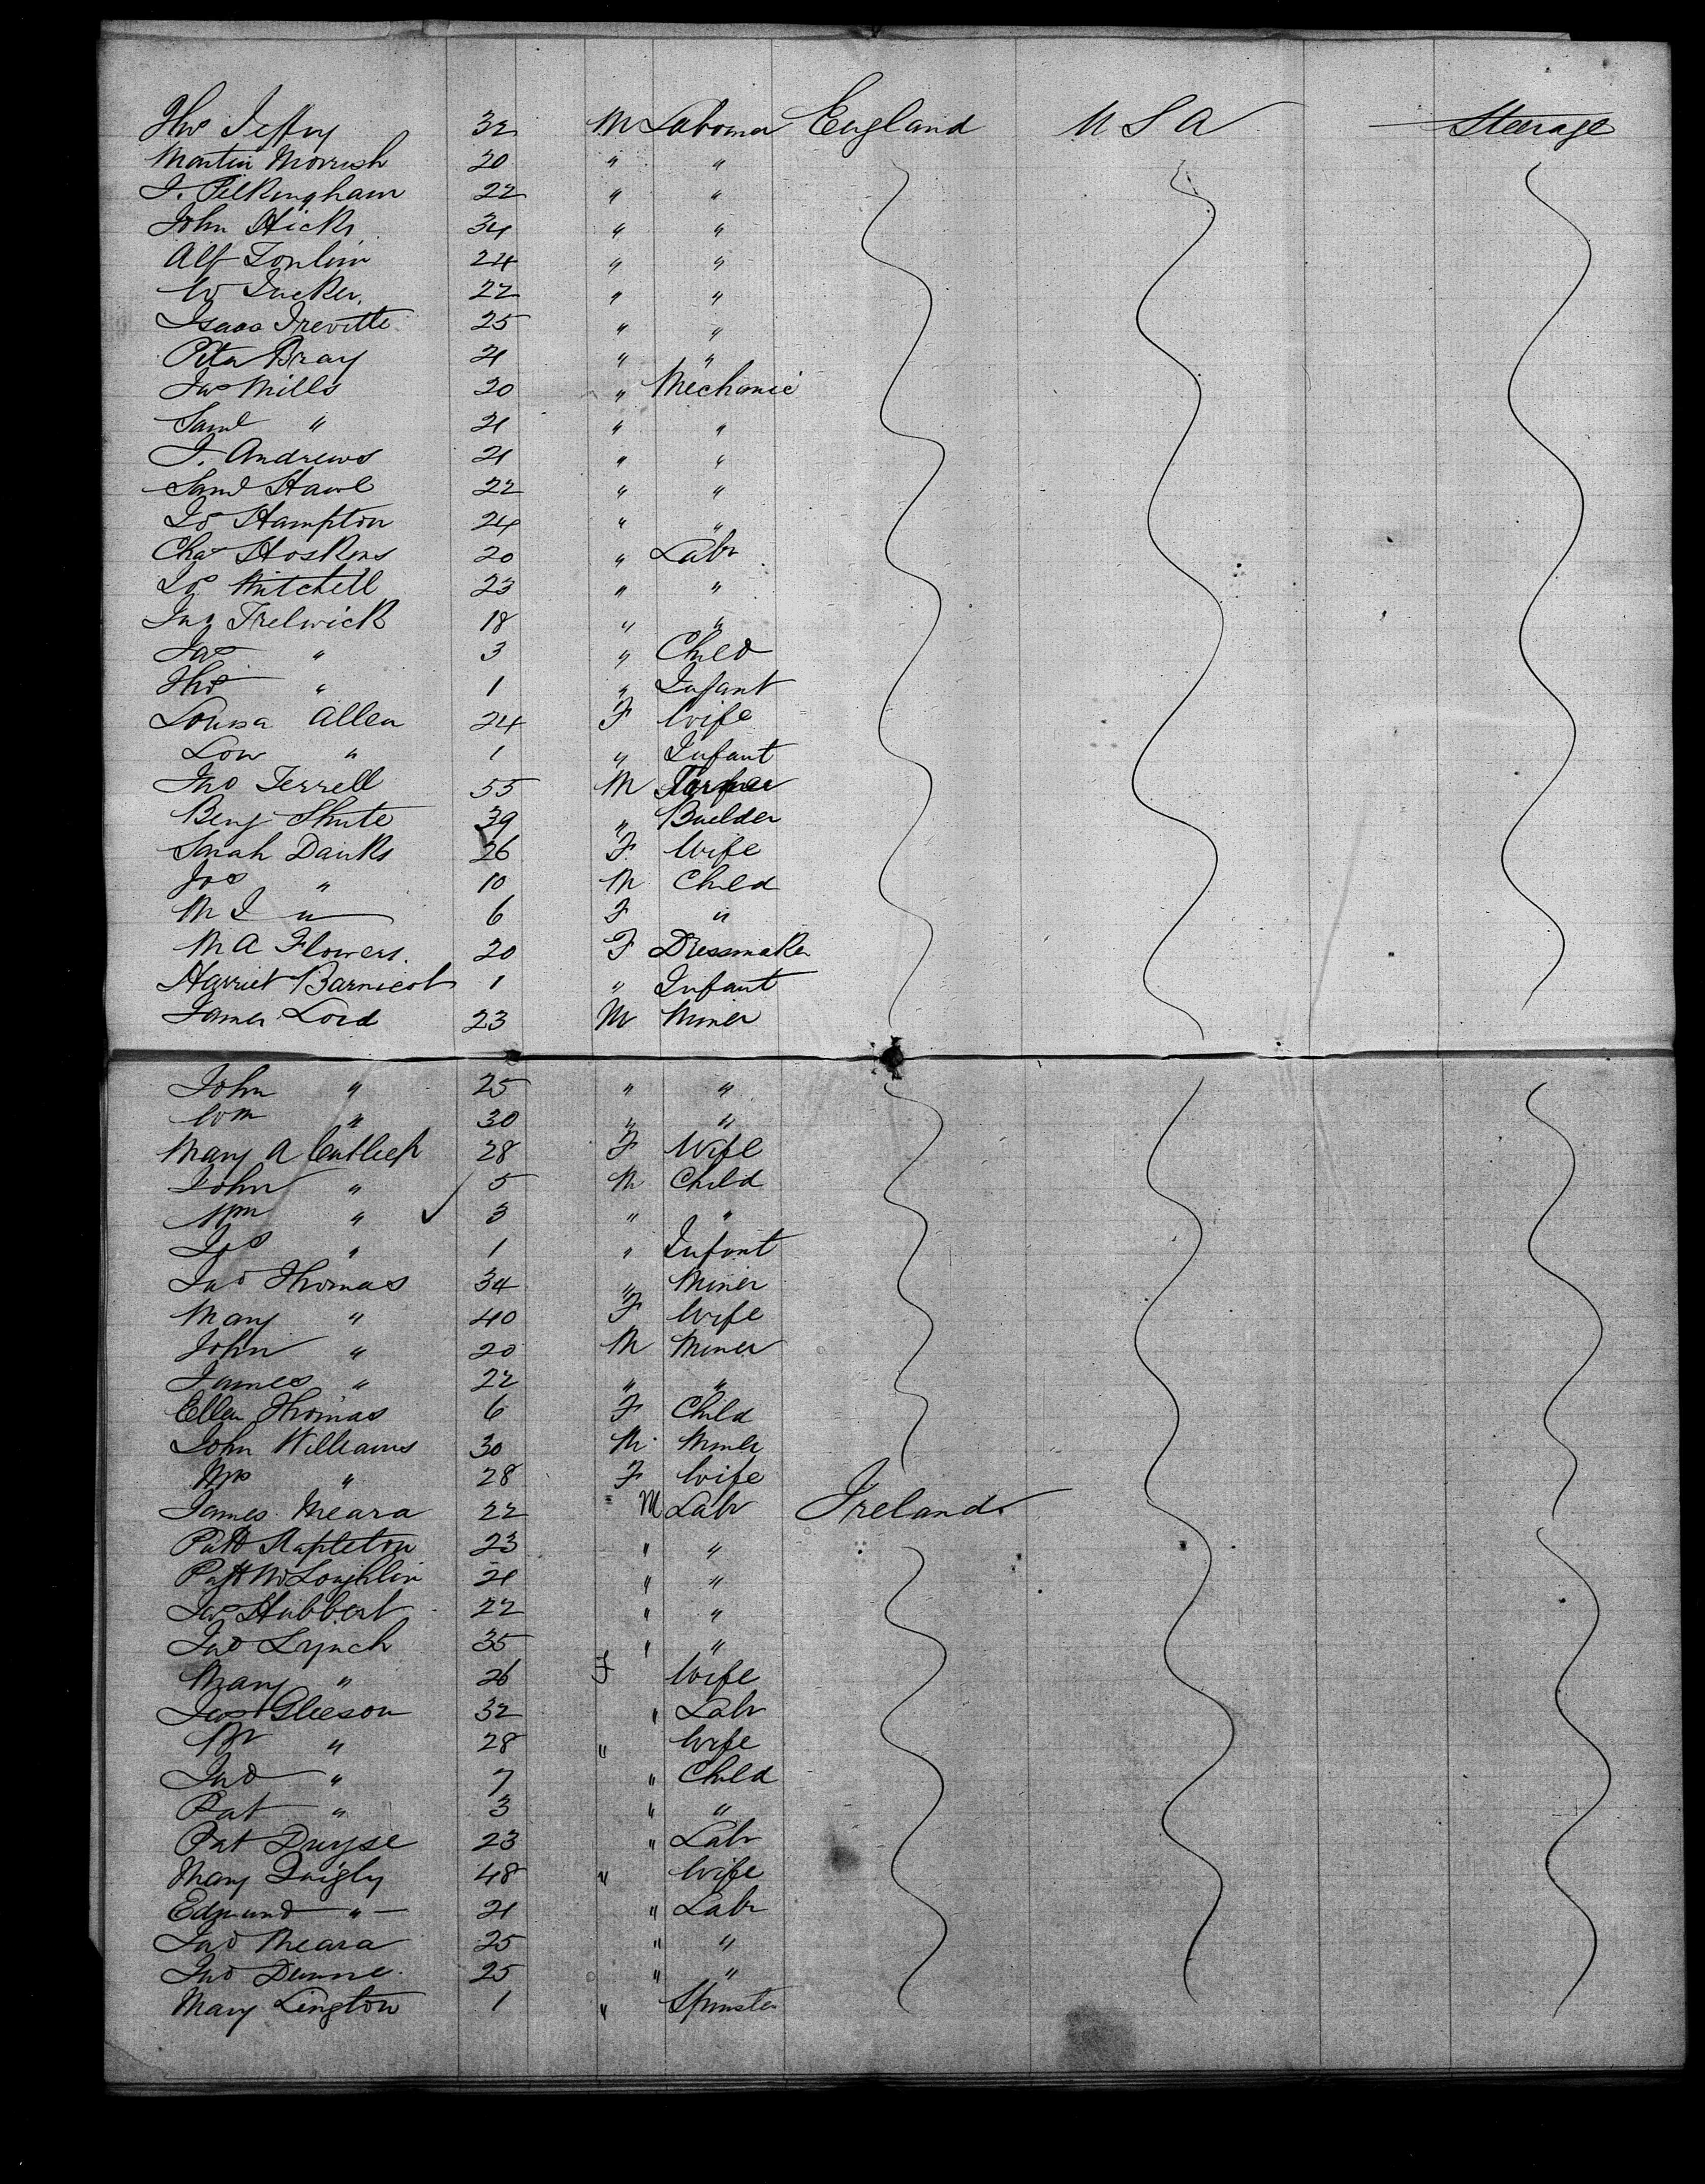 Thos Jeffry 32 M Laborer England USA Steerage
Martin Morrish 20 " "
J. Pilkingham 22 " "
John Hicks 34 " "
Alf Tonlin 24 " "
W Tucker. 22 " "
Isaac Treville 25 " "
Peter Bray 21 " "
Jas Mills 20 " Mechanic
Saml " 21 " "
J. Andrews 21 " "
Saml Hawl 22 " "
Jos Hampton 24 " "
Chas Hoskens 20 " Labr
Jos Mitchell 23 " "
Jno Trelwick 18 " "
Jas " 3 " Child
Thos " 1 " Infant
Lousa Allen 24 F Wife
Low " 1 " Infant
Jno Terrell 55 M
Benj Shute 39 " Builder
Sarah Danks 26 F Wife
Jos " 10 M Child
M J " 6 F "
M A Flowers. 20 F Dressmaker
Harriet Barnicot 1 " Infant
James Lord 23 M Miner
John " 25 " "
Wm " 30 " "
Mary A 28 F Wife
John " 5 M Child
Wm " 3 " "
Jos " 1 " Infant
Jno Thomas 34 " Miner
Mary " 40 F Wife
John " 20 M Miner
James " 22 " "
Ellen Thomas 6 F Child
John Williams 30 M Miner
Mrs " 28 F Wife
James Meara 22 M Labr Ireland
Patk Stapleton 23 " "
Patk McLoughlin 21 " "
Jas Hubbert 22 " "
Jno Lynch 35 " "
Mary " 26 F Wife
Jas Gleeson 32 " Labr
" 28 " Wife
Jno " 7 " Child
Pat " 3 " "
Pat 23 " Labr
Mary Quigly 48 " Wife
Edmund " 21 " Labr
Jno Meara 25 " "
Jno Dunne 25 " "
Mary Lington 1 " Spinster